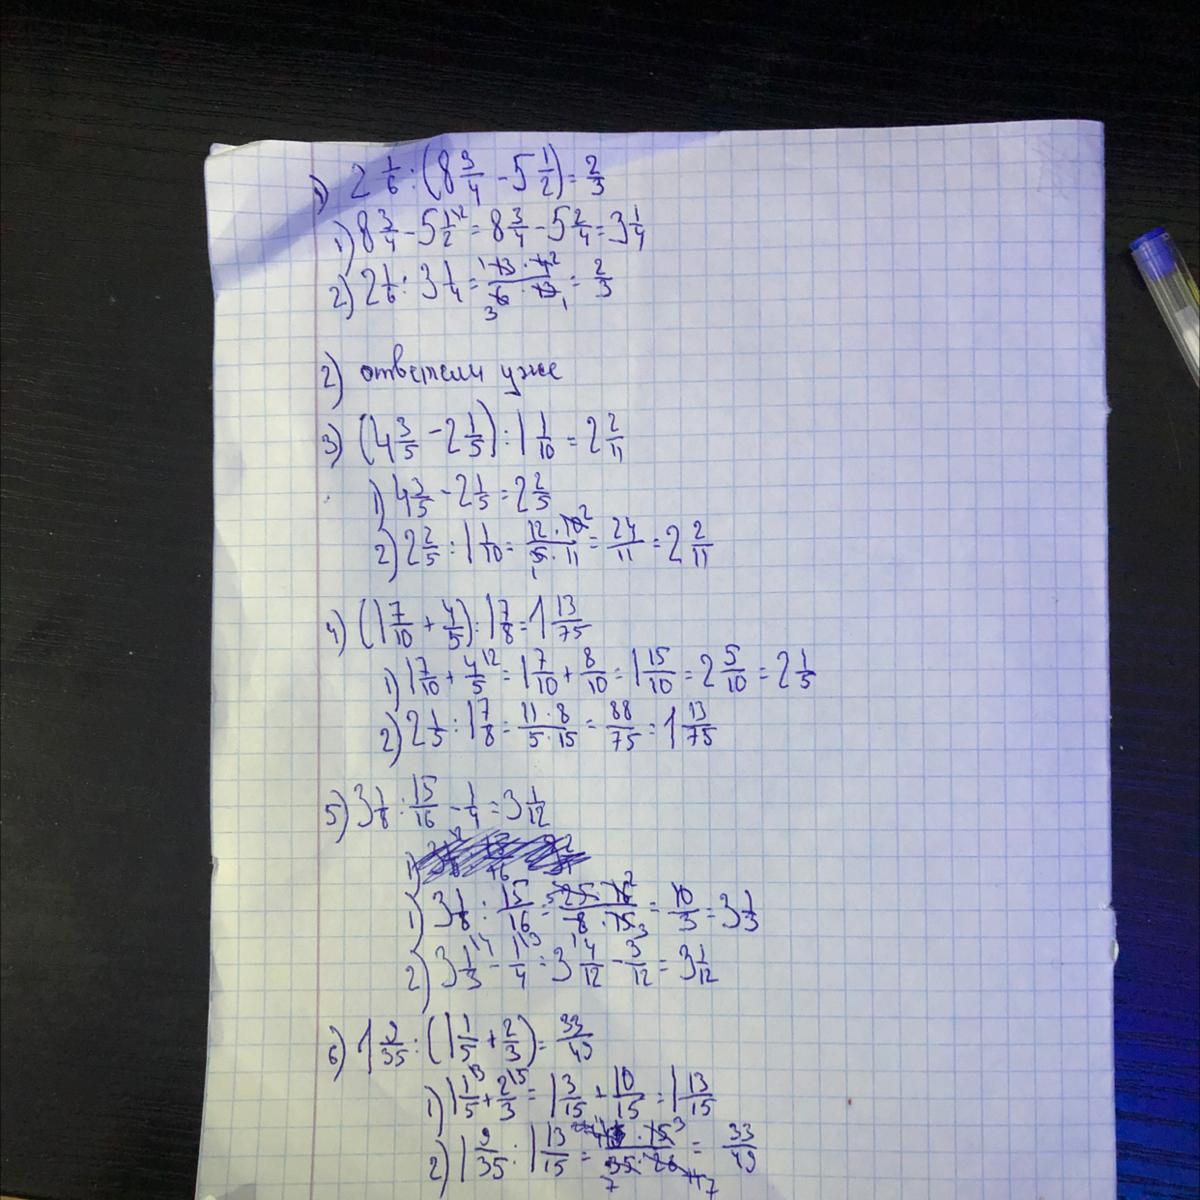 1) 2 1/6 : (8 3/4 - 5 1/2) = 2/3
1) 8 3/4 - 5 1/2 = 8 3/4 - 5 2/4 = 3 1/4
2) 2 1/6 : 3 1/4 = 13 · 4 / 6 · 13 = 2/3
2) ответели уже
3) (4 3/5 - 2 1/5) : 1 1/10 = 2 2/11
1) 4 3/5 - 2 1/5 = 2 2/5
2) 2 2/5 : 1 1/10 = 12 · 10 / 5 · 11 = 24/11 = 2 2/11
4) (1 7/10 + 4/5) : 1 7/8 = 1 13/75
1) 1 7/10 + 4/5 = 1 7/10 + 8/10 = 1 15/10 = 2 5/10 = 2 1/5
2) 2 1/5 : 1 7/8 = 11 · 8 / 5 · 15 = 88/75 = 1 13/75
5) 3 1/8 : 15/16 - 1/4 = 3 1/12
1) 3 1/8 : 15/16 = 25 · 16 / 8 · 15 = 10/3 = 3 1/3
2) 3 1/3 - 1/4 = 3 4/12 - 3/12 = 3 1/12
6) 1 9/35 : (1 1/5 + 2/3) = 33/49
1) 1 1/5 + 2/3 = 1 3/15 + 10/15 = 1 13/15
2) 1 9/35 : 1 13/15 = 33/49